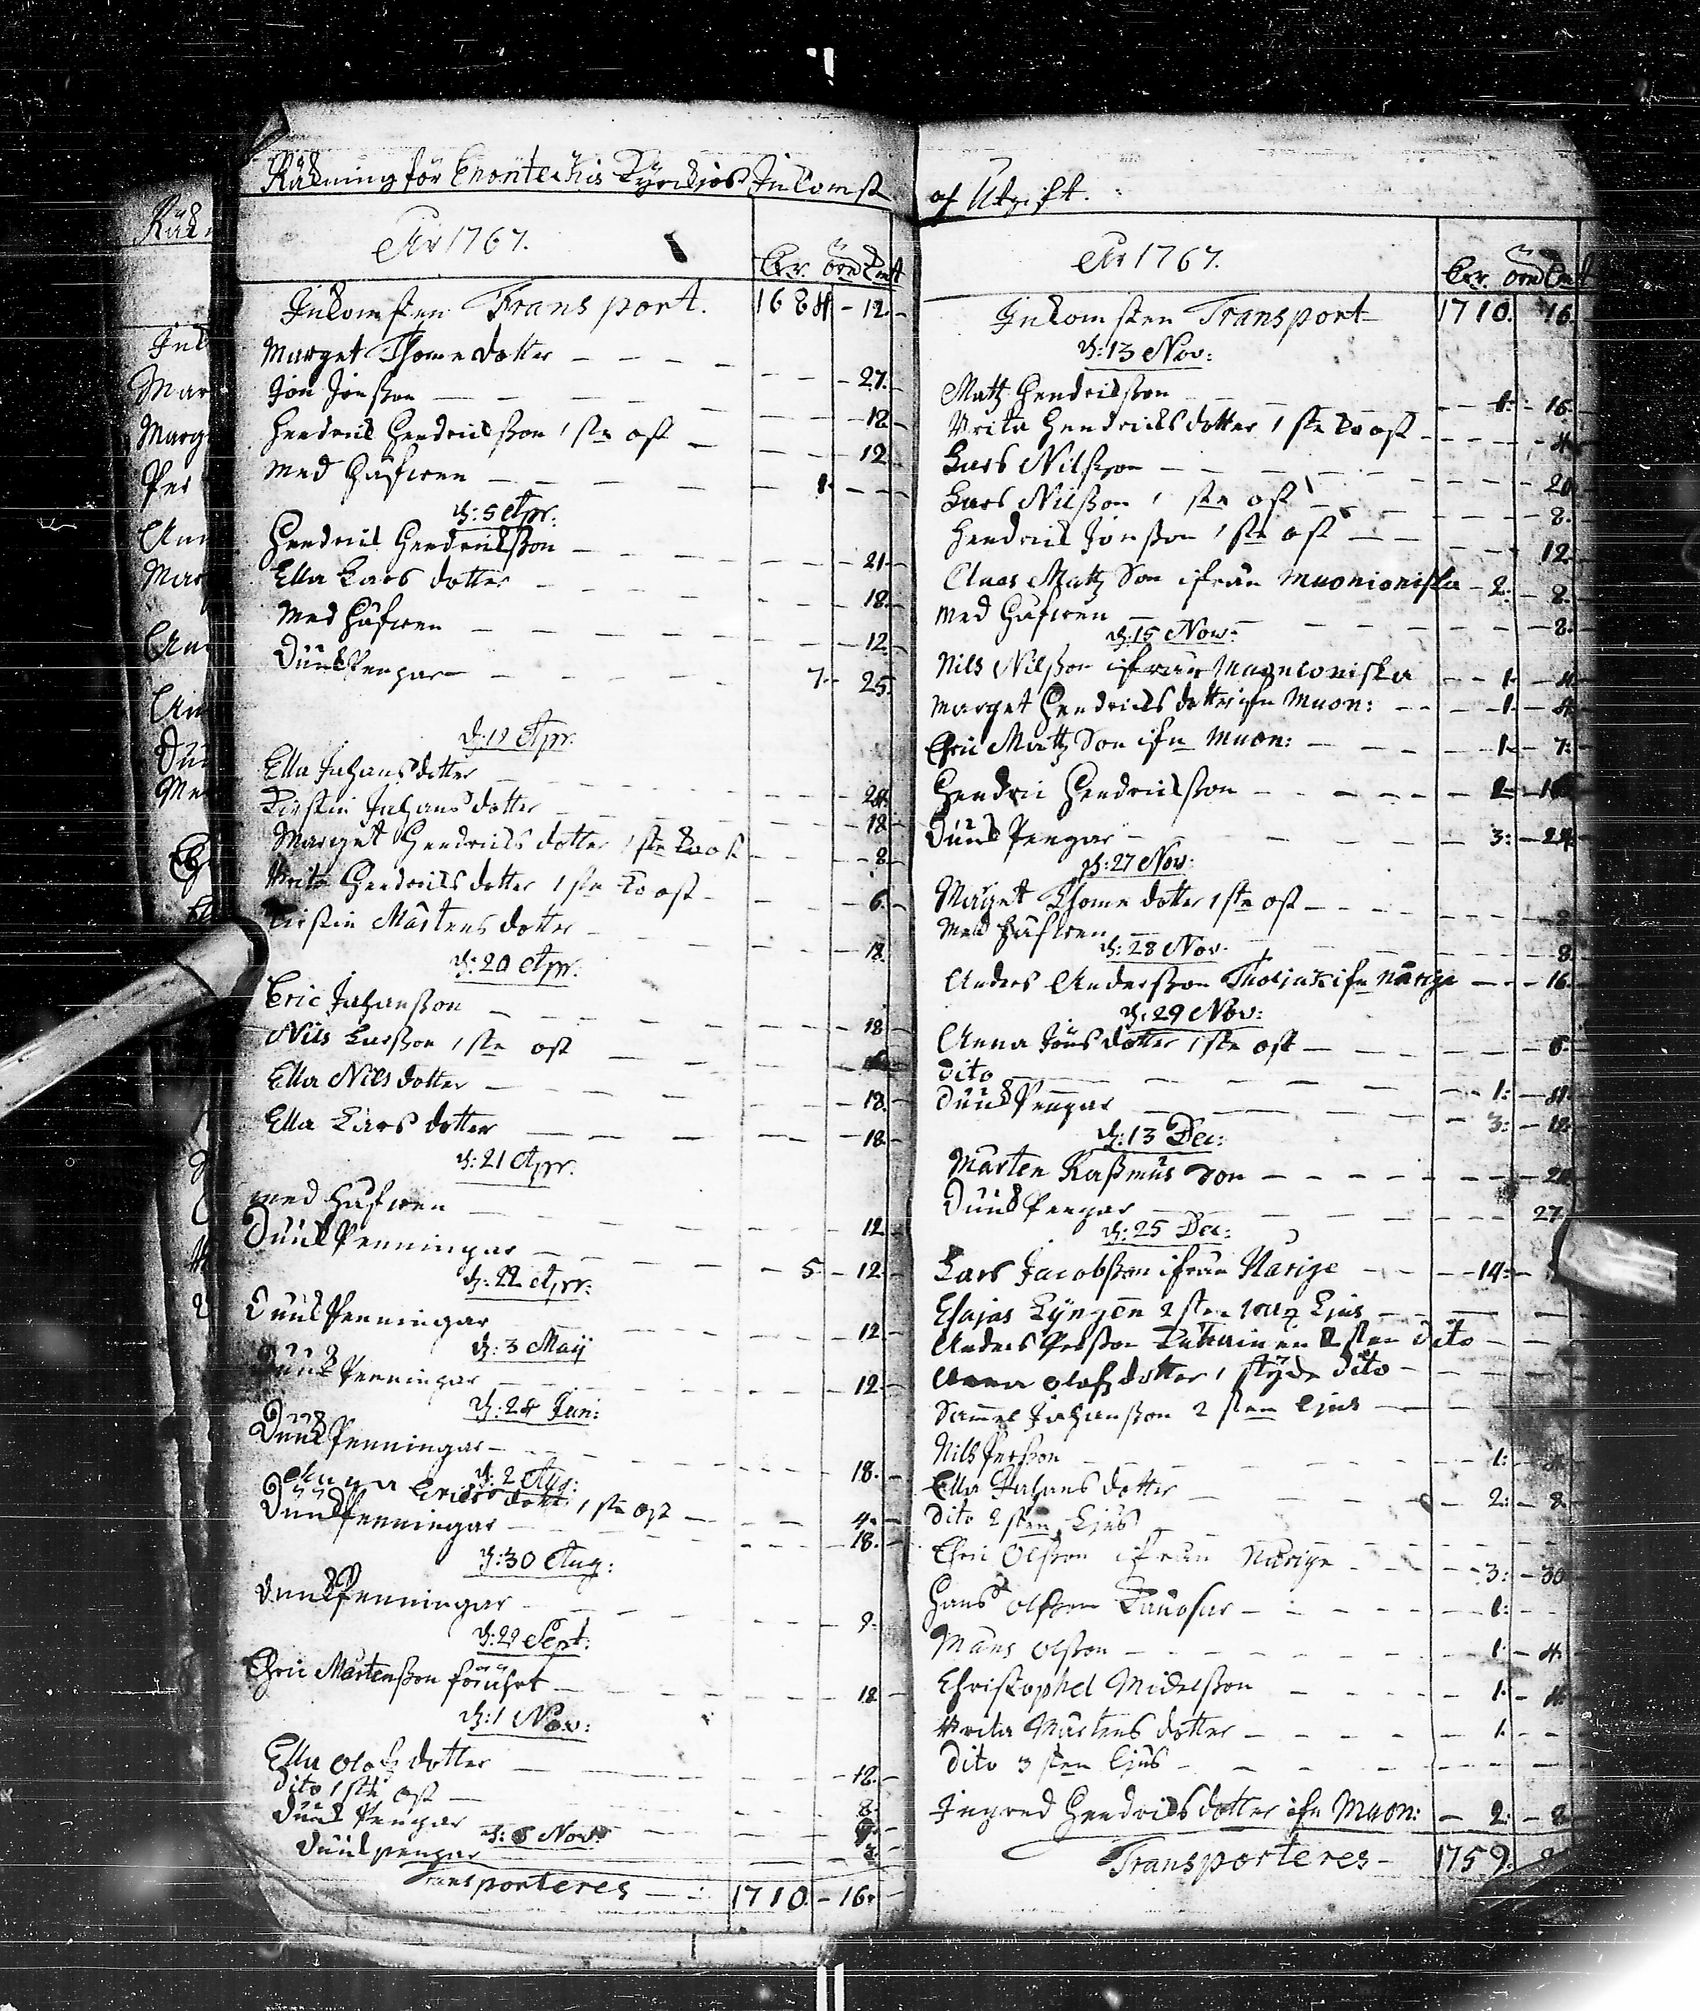 Räkning för Enontekis Kyrckjos Inkomst
År 1767.
Inkomsten Transport. 1684 - 12.
Marget Thomedotter 27.
Jon Jonsson 18
Hendrik Hendriksson 1 ste ost 12
Med Håfwen 1.
d. 5 Apr.
Hendrik Hendriksson 21.
Ella Lars dotter 18.
Med Håfwen 12.
Duuk Pengar 7. 25.
d. 19 Apr.
Ella Johansdotter 24.
Kirstin Johansdotter 18
Marget Hendriks dotter 1 ste 8.
Brita Hendriks dotter 1 ste 6.
Kirstin Mårtens dotter 18
d. 20 Apr.
Eric Johansson 18
Nils Larsson 1 ste ost
Ella Nils dotter 18.
Ella Lars dotter 18.
d. 21 Apr.
Med Håfwen 12
Duuk Penningar 5 - 12.
d. 22 Apr.
Duuk Penningar 12
d. 3 Maij
Duuk Penningar 12
d. 24 Jun:
Duuk Penningar 18.
d. 2 Aug:
Erics dotter 1 ste ost 4.
Duuk Penningar 18.
d. 30 Aug:
Duuk Penningar 9.
d. 29 Sept:
Eric Mårtensson 18
d. 1 Nov:
Ella Olofs dotter 12.
dito 1 ste ost 8.
Duuk Pengar
d. 8 Nov:
Duuk pengar 3.
Transporteres 1710. - 16.
of Utgift.
År 1767.
Inkomsten Transport 1710. 16.
d. 13 Nov:
Matz Hendriksson 1. 16.
Brita Hendriks dotter 1 ste 4.
Lars Nilsson 20.
Lars Nilsson 1 ste ost 8.
Hendrik Jonsson 1 ste ost 12.
Claas Matz Son ifrån Muonioniska 2. 8.
Med Håfwen 8.
d. 15 Nov:
Nils Nilsson ifrån Muonioniska 1. 4.
Marget Hendriks dotter ifn Muon: 1. 4.
Eric Matz Son ifn Muon: 1. 7.
Hendric Hendriksson
Duuk Pengar 3: 24
d. 27 Nov:
Marget Thome dotter 1 ste ost
Med Håfwen 8.
d. 28 Nov.
Anders Andersson ifn Narige 16.
d. 29 Nov:
Anna Jöns dotter 1 ste ost
dito 1.
Duuk Pengar 3: 12.
d. 13 Dec:
Mårten Rasmus Son
Duuk Pengar 27.
d. 25 Dec:
Lars Jacobsson ifrån Narige 14.
Esajas Lyngen 2 sten Ljus
Anders Persson 2 sten dito
Anna Olofs dotter 1 stÿke dito
Samuel Johansson 2 sten Ljus
Nils Persson 1.
Ella Johans dotter 2. 8.
dito 2 sten Ljus
Eric Olsson ifrån Narige 3: 30
Hans Olsson 1.
Måns Olsson 1. 4.
Christophel Mickelsson 1. 4.
Brita Mårtens dotter 1.
dito 3 sten Ljus
Ingred Hendriks dotter ifn Muon: 2. 8
Transporteres 1759.